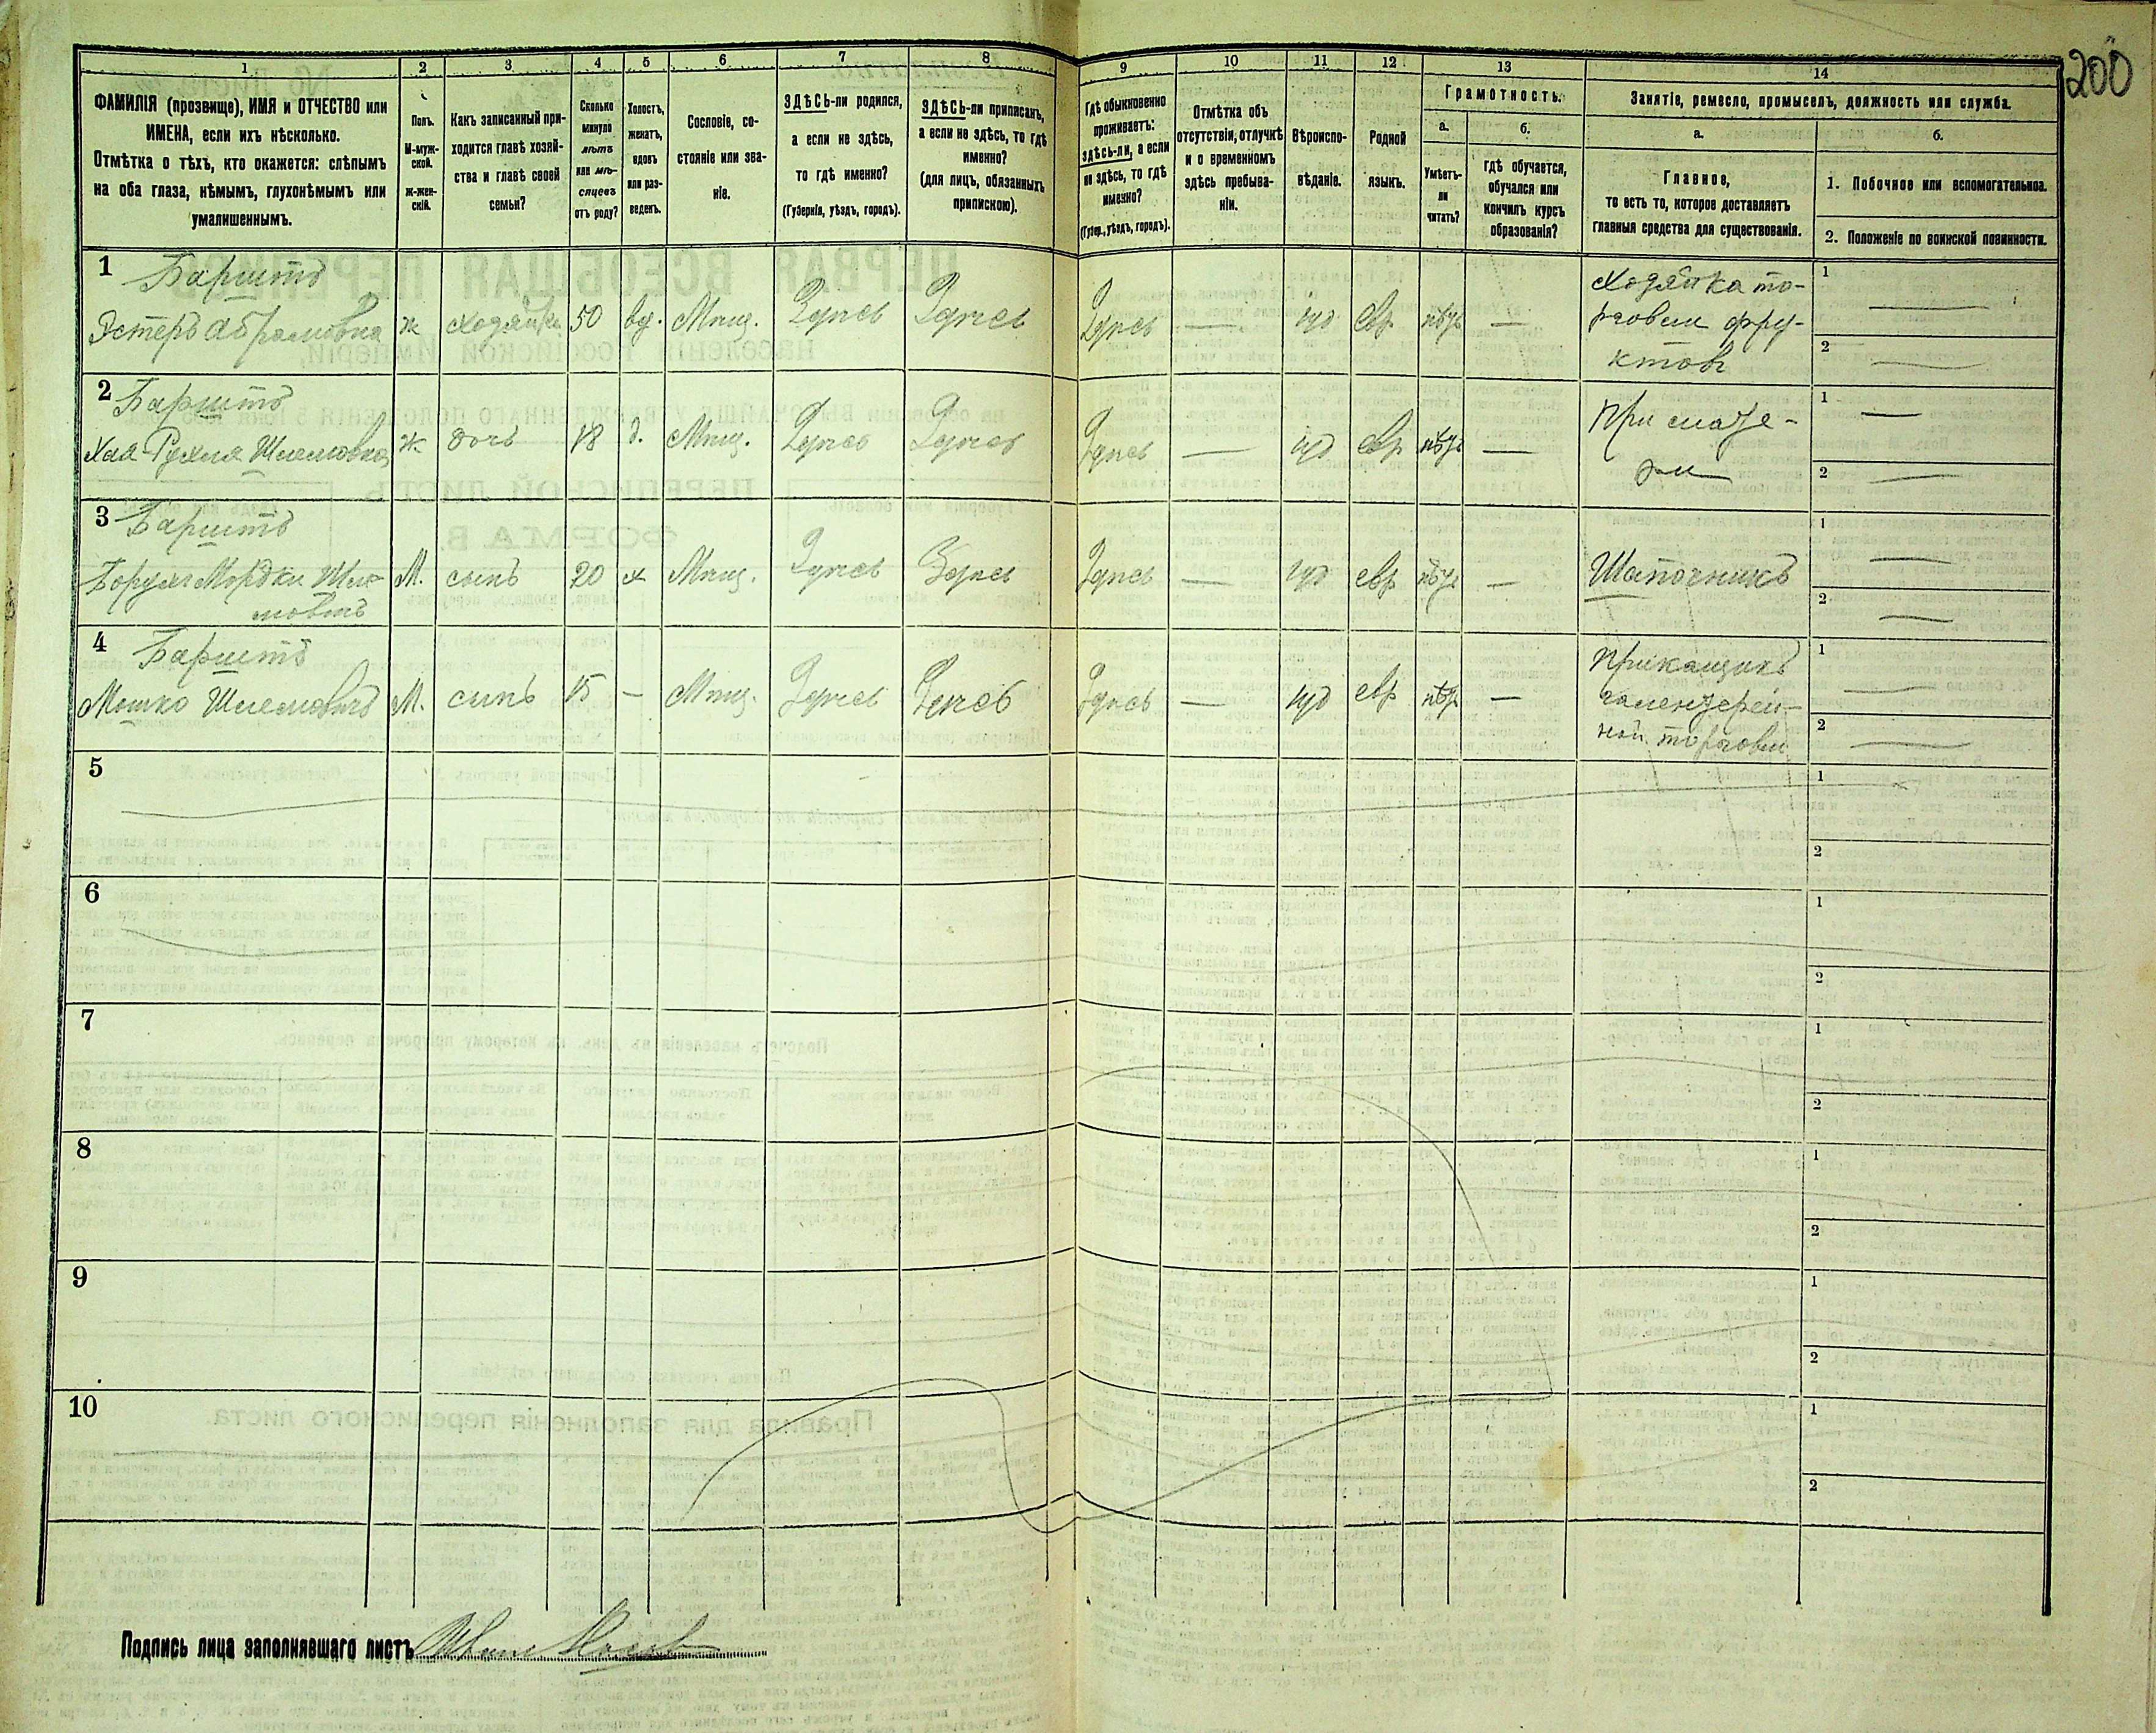 200
1 2 3 4 5 6 7 8 9 10 11 12 13 14
ФАМИЛІЯ (прозвище), ИМЯ и ОТЧЕСТВО или
ИМЕНА, если ихъ нѣсколько.
Отмѣтка о тѣхъ, кто окажется: слѣпымъ
на оба глаза, нѣмымъ, глухонѣмымъ или
умалишеннымъ.
Полъ.
М-муж-
ской.
ж-жен-
скій.
Какъ записанный при-
ходится главѣ хозяй-
ства и главѣ своей
семьи?
Сколько
минуло
лѣтъ
или мѣ-
сяцевъ
отъ роду?
Холостъ,
женатъ,
вдовъ
или раз-
веденъ.
Сословіе, со-
стояніе или зва-
ніе.
ЗДѢСЬ-ли родился,
а если не здѣсь,
то гдѣ именно?
(Губернія, уѣздъ, городъ).
ЗДѢСЬ-ли приписанъ,
а если не здѣсь, то гдѣ
именно?
(для лицъ, обязанныхъ
припискою).
Гдѣ обыкновенно
проживаетъ:
здѣсь-ли, а если
не здѣсь, то гдѣ
именно?
(Губер., уѣздъ, городъ).
Отмѣтка объ
отсутствіи, отлучкѣ
и о временномъ
здѣсь пребыва-
ніи.
Вѣроиспо-
вѣданіе.
Родной
языкъ.
Грамотность.
а.
Умѣетъ-
ли
читать?
б.
гдѣ обучается,
обучался или
кончилъ курсъ
образованія?
Занятіе, ремесло, промыселъ, должность или служба.
а.
Главное,
то есть то, которое доставляетъ
главныя средства для существованія.
б.
1. Побочное или вспомогательное.
2. Положеніе по воинской повинности.
1 Баритъ
Эстеръ Абрамовна ж хозяйка 50 вд. Мѣщ. Здѣсь Здѣсь Здѣсь — іуд евр нѣтъ —
Хозяйка то-
рговли фру-
ктовъ
1 —
2 —
2 Баритъ
Хая-Рухля Шлемовна ж дочь 18 д. Мѣщ. Здѣсь Здѣсь Здѣсь — іуд евр нѣтъ —
При мате-
ри
1 —
2 —
3 Баритъ
Борухъ Мордки Шле-
мовъ М. сынъ 20 х Мѣщ. Здѣсь Здѣсь Здѣсь — іуд евр нѣтъ —
Шапочникъ
1 —
2 —
4 Баритъ
Мошко Шлемовъ М. сынъ 15 — Мѣщ. Здѣсь Здѣсь Здѣсь — іуд евр нѣтъ —
Прикащикъ
галентерей-
ной торговли
1 —
2 —
5 1
2
6 1
2
7 1
2
8 1
2
9 1
2
10 1
2
Подпись лица заполнявшаго листъ